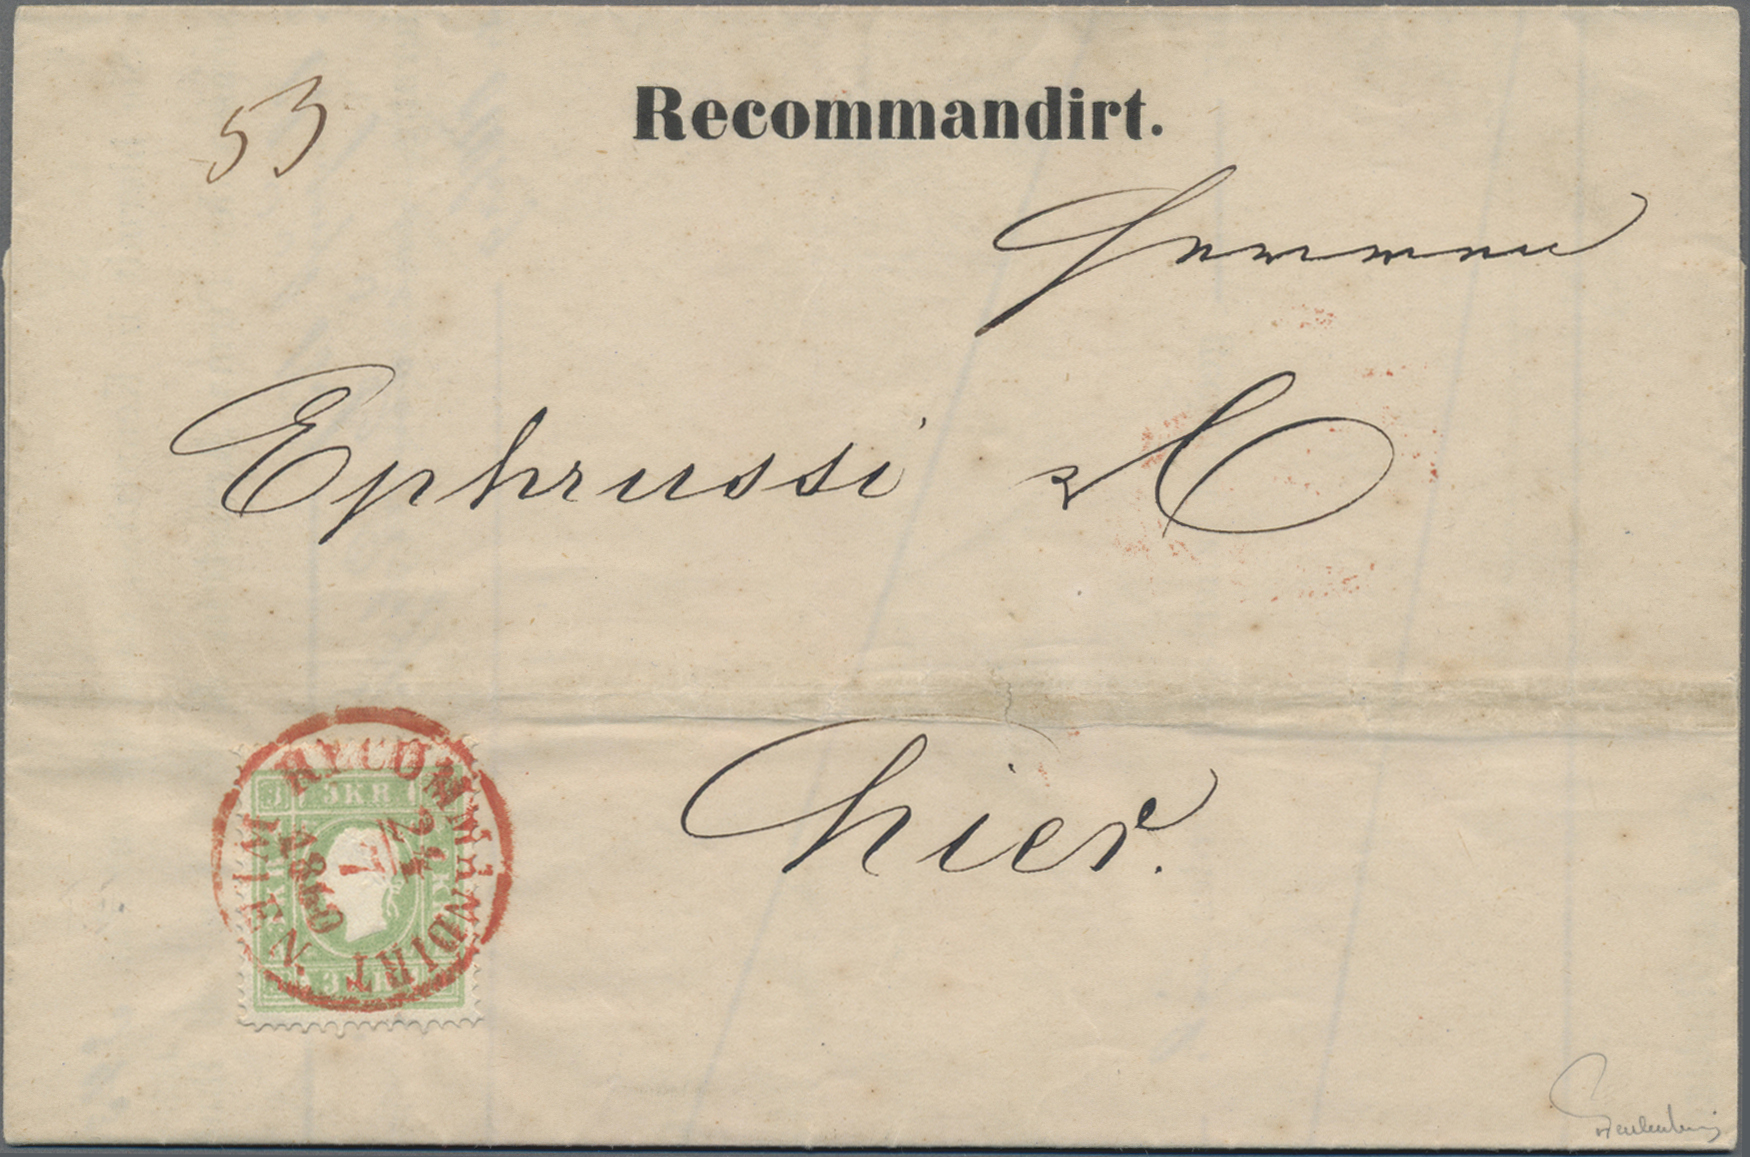 53
Recommandirt.
Herren
Ephrussi & C
hier.
RECOMMANDIRT WIEN
24
7
1860
3 KR